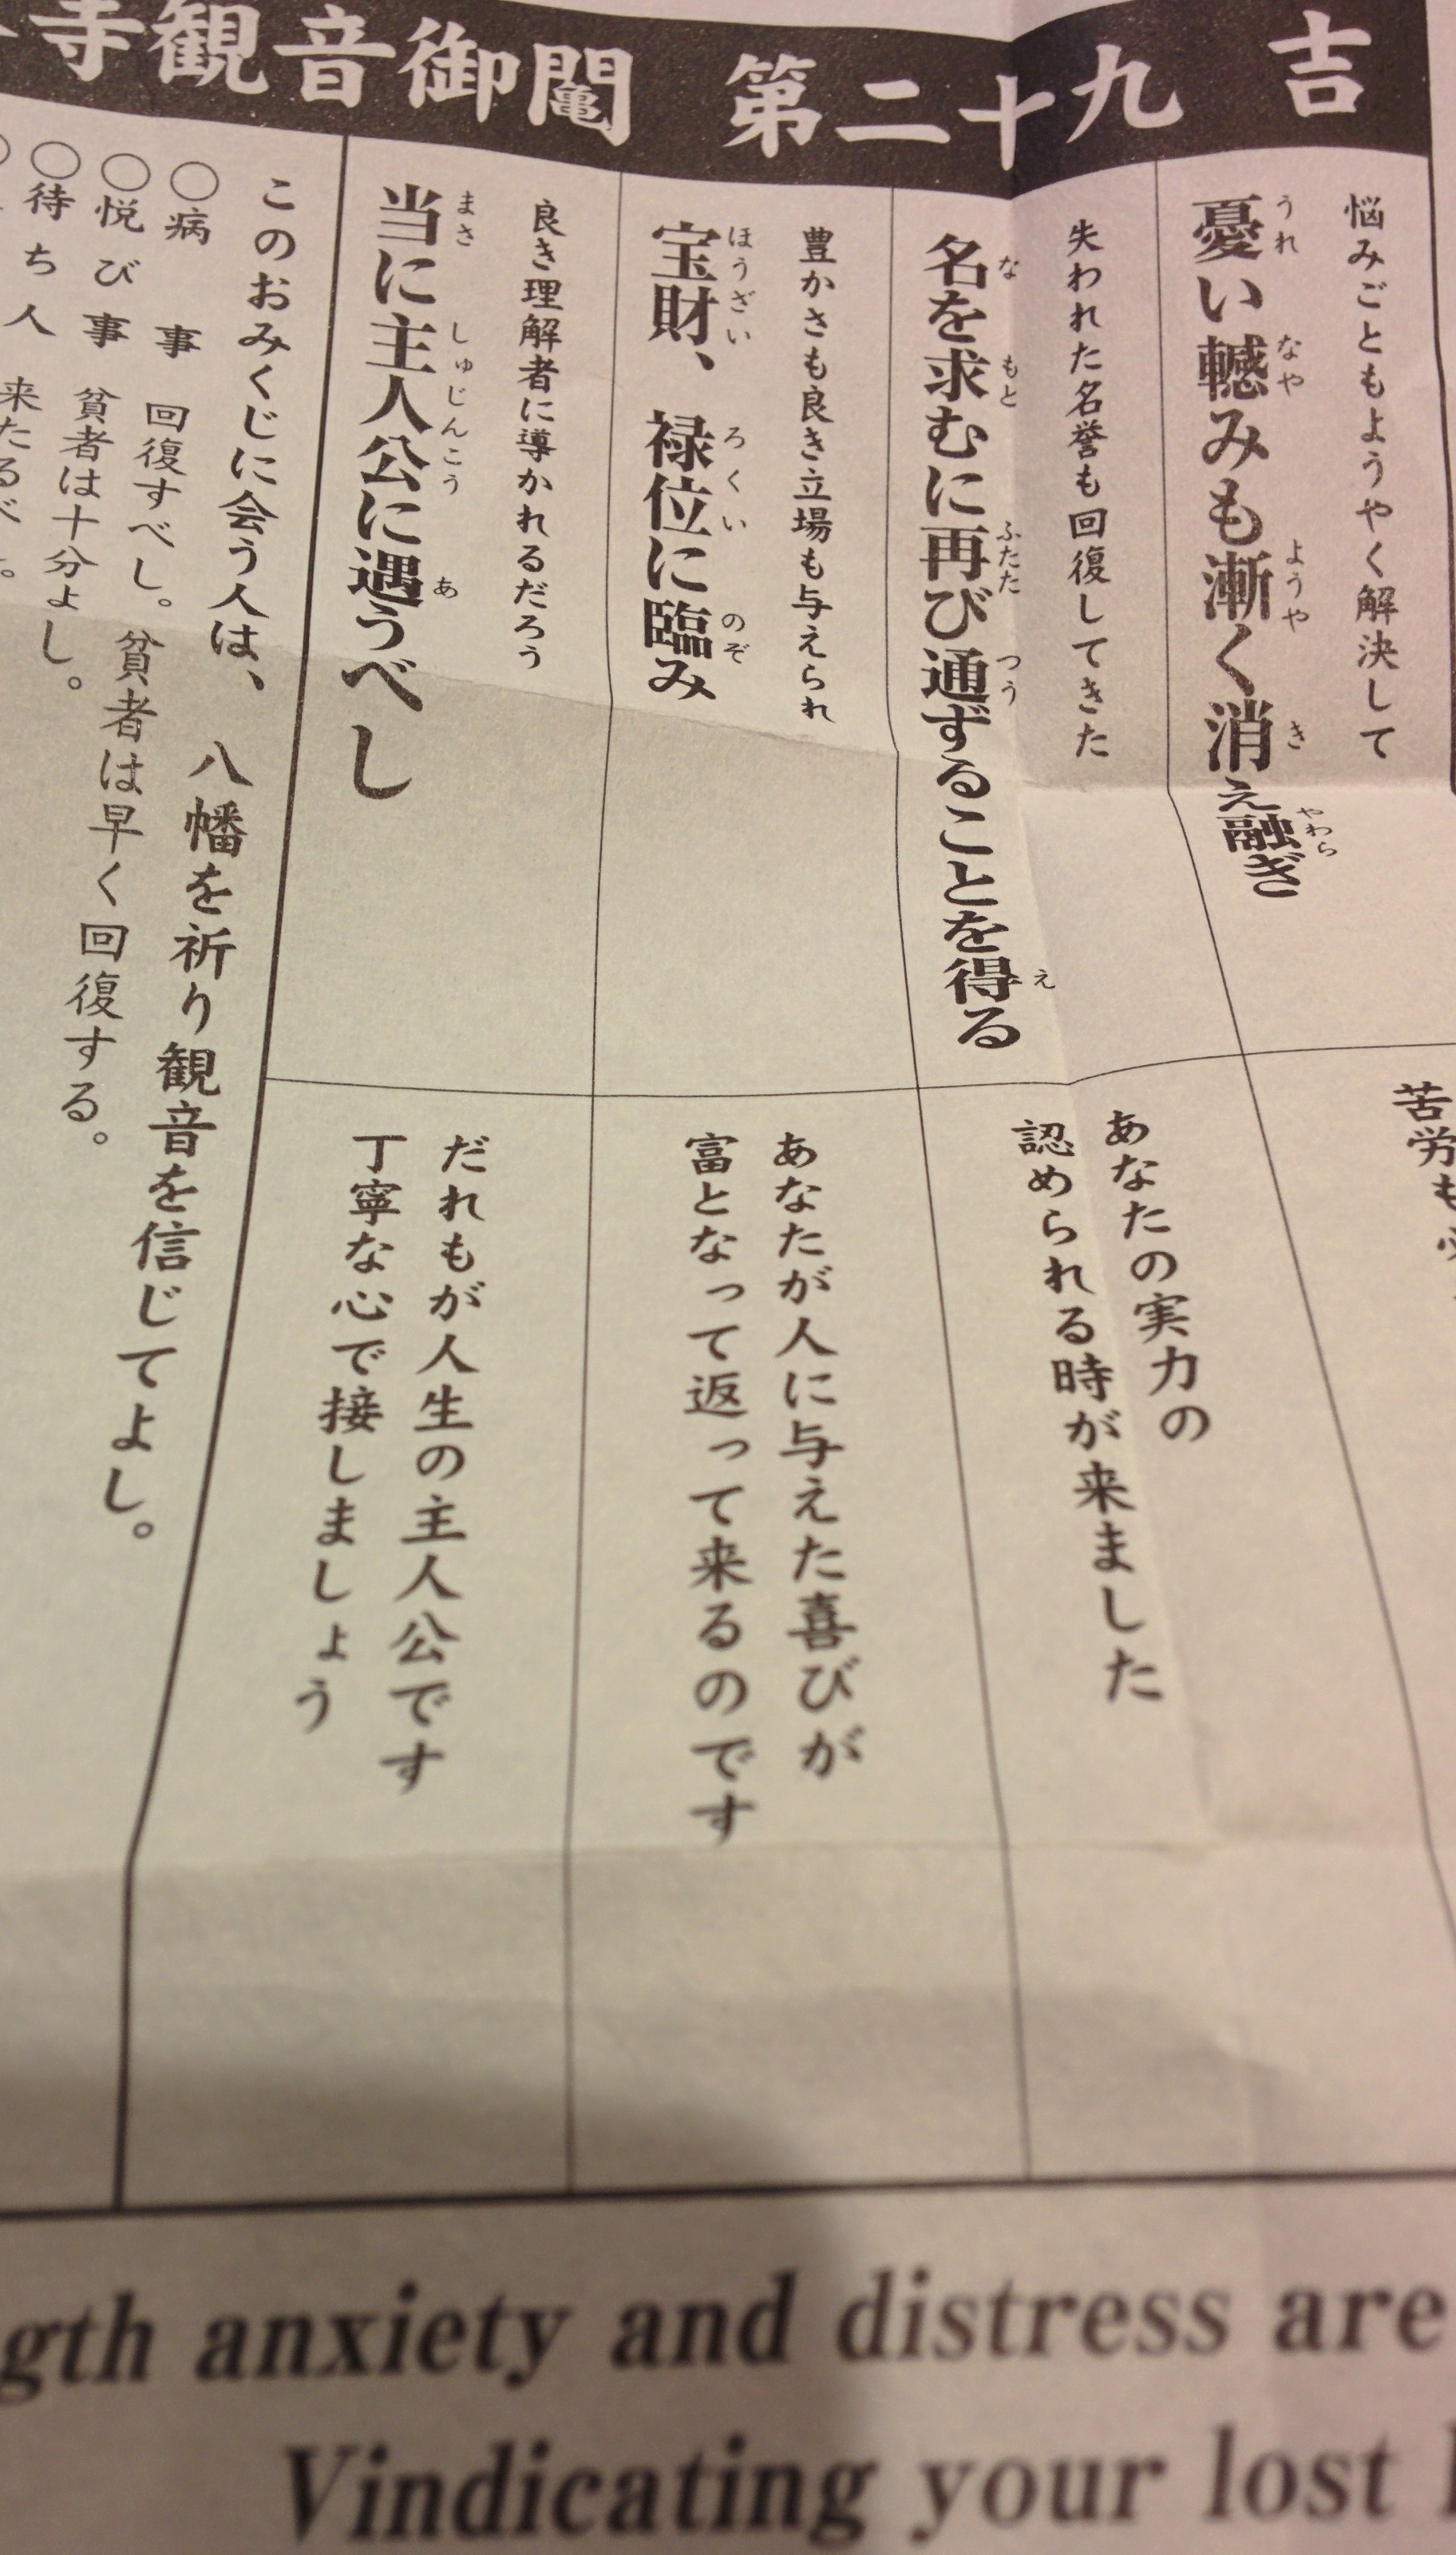 寺観音御鬮 第二十九 吉
悩みごともようやく解決して
憂い轗みも漸く消え融ぎ
うれ なや ようや き やわら
失われた名誉も回復してきた
名を求むに再び通ずることを得る
な もと ふたた つう え
豊かさも良き立場も与えられ
宝財、禄位に臨み
ほうざい ろくい のぞ
良き理解者に導かれるだろう
当に主人公に遇うべし
まさ しゅじんこう あ
苦労も
あなたの実力の
認められる時が来ました
あなたが人に与えた喜びが
富となって返って来るのです
だれもが人生の主人公です
丁寧な心で接しましょう
このおみくじに会う人は、八幡を祈り観音を信じてよし。
○病事 回復すべし。貧者は早く回復する。
○悦び事 貧者は十分よし。
○待ち人 来たるべ
gth anxiety and distress are
Vindicating your lost